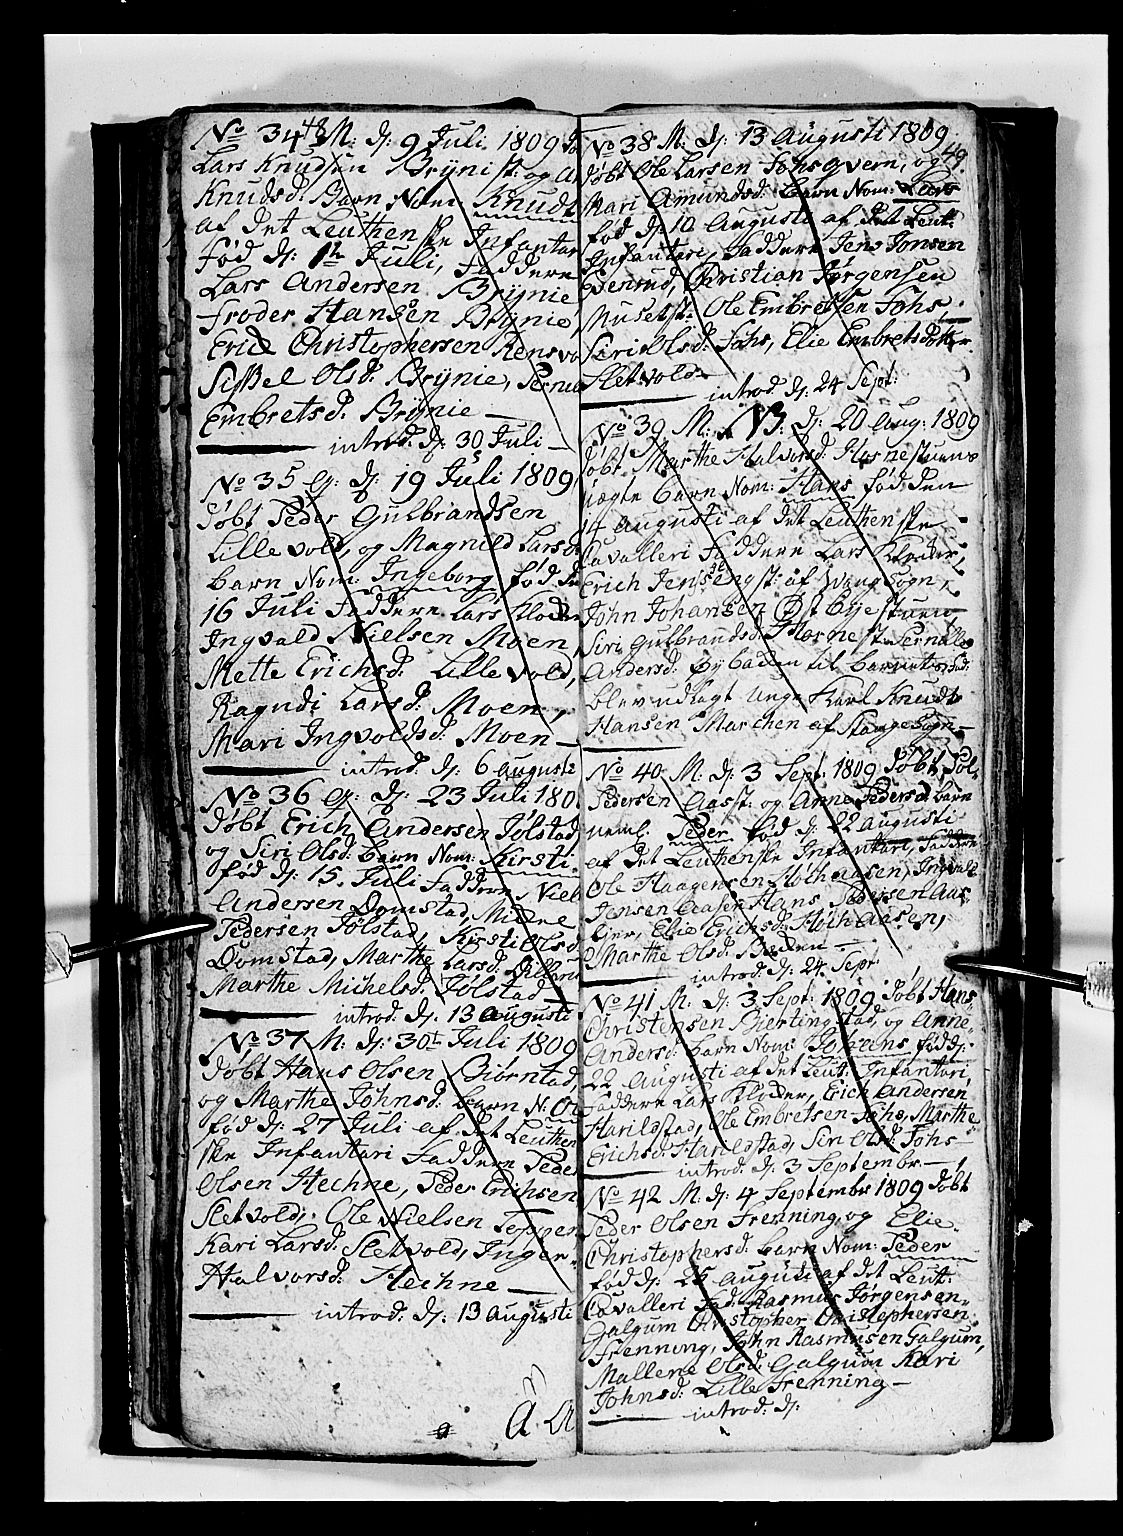 No 34 M. dj: 9 Juli 1809
Lars Knudsen Brÿni st: og
Knudsd: Barn Nom: Knudt
af det Leuthen ske Infantar
fød dj: 1te Juli, Faddere
Lars Andersen Brÿnie
Froder Hansen Brÿnie,
Erick Christophersen Rensvo
Sissel Olsd: Brÿnie, Pernil
Embretsd. Brÿnie —
introd: dj: 30 Juli —
No 35 dj: 19 Juli 1809
døbt Peder Gulbrandsen
Lille vold, og Magnild Larsd:
barn Nom: Ingeborg fød d
16 Juli Faddere Lars Kloder
Ingvald Nielsen Moen,
Mette Erichsd: Lille vold,
Ragndi Larsd: Moen,
Mari Ingvoldsd: Moen —
introd: dj: 6 augusti
No 36 dj: 23 Juli 180
døbt Erich Andersen Jølstad
og Siri Olsd: barn Nom: Kirsti
fød dj: 15. Juli Faddere Niels
Andersen Domstad,
Pedersen Jølstad, Kirsti Olsd:
Domstad, Marthe Larsd:
Marthe Michelsd: Jølstad
introd. dj. 13 augusti
No 37 M: dj: 30t Juli 1809
døbt Hans Olsen Biørnstad,
og Marthe Johnsd: barn N: Ol
fød dj: 27 Juli af det Leuthen
ske Infantari Faddere Peder
Olsen Hechne, Peder Erichsen
Sletvold, Ole Nielsen Topper
Kari Larsd: Sletvold, Inger
Halvorsd: Hechne —
introd: dj: 13 augusti
49.
No 38 M: dj: 13 augusti 1809
døbt Ole Larsen Johsqvern, og
Mari Amundsd: barn Nom: Lars
fød dj 10 Augusti af det Leut:
Infantari, Faddere Jens Jonsen
Evenrud, Christian Jørgensen
Musetst: Ole Embretsen Johs,
Siri Olsd: Johs, Elie Embretsd:
Sletvold
introd dj: 24 Sept:
No 39 M: NB. dj: 20 aug: 1809
døbt Marthe Halvorsd: Hornestuens
uægte barn Nom: Hans fød den
14 augusti af det Leuthenske
Cavalleri Faddere Lars Kloder,
Erich Jensen af Wang Sogn,
John Johansen Øst bye stuen
Siri Gulbrandsd: Hornest: Pernille
Andersd: til barnet
blev udlagt unge Karl Knudt
Hansen Marchen af Stange Sogn —
No 40 M. dj: 3 Sept: 1809 døbt
Pedersen Aasst: og Anne Pedersd: barn
neml: Peder fød dj 22 augusti
af det Leuthenske Infantari, Faddere
Ole Haagensen Hochaasen, Ingvald
Jensen Aasen Hans Pedersen Aas
Eier, Elie Erichsd: Hochaasen,
Marthe Olsd: —
introd dj: 24. Sept:
No 41 M. dj: 3 Sept: 1809 døbt Hans
Christensen Bierting stad, og Anne
Andersd: barn Nom: Johans fød dj:
22 augusti af det Leut: Infantari
Faddere Lars Kloder, Erich Andersen
Harildstad, Ole Embretsen Johs, Marthe
Erichsd: Harildstad, Siri Olsd: Johs —
introd dj 3 Septembr —
No 42 M. dj: 4 Septembr 1809 døbt
Peder Olsen Frenning, og Elie
Christophersd: barn Nom: Peder
fød dj: 25 augusti af det Leut:
Cavalleri Fad: Rasmus Jørgensen
Galgum Christopher Christophersen
Frenning, John Rasmusen Galgum,
Mallene Olsd: Galgum Kari
Johnsd: Lille Frenning —
introd: dj: